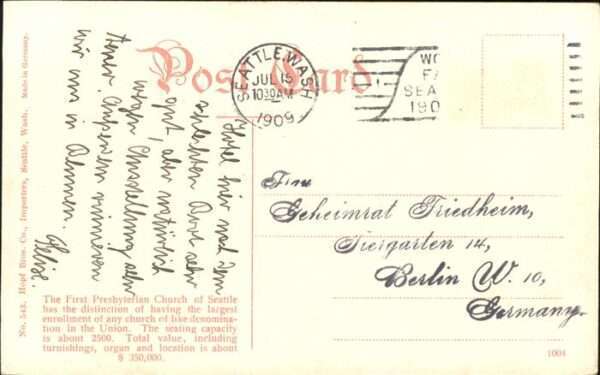 Post Card
SEATTLE, WASH.
JUL 15
10:30 AM
1909
WO
FA
SEA
190
Hotel hier nach dem
schlechten Dort sehr
gut, aber natürlich
wegen Ausstellung sehr
teuer
wir nur in Bohmen.
Frau
Geheimrat Friedheim,
Tiergarten 14,
Berlin W. 10,
Germany.
No. 543. Hopf Bros. Co., Importers, Seattle, Wash. Made in Germany.
The First Presbyterian Church of Seattle
has the distinction of having the largest
enrollment of any church of like denomina-
tion in the Union. The seating capacity
is about 2500. Total value, including
furnishings, organ and location is about
$ 350,000.
1004